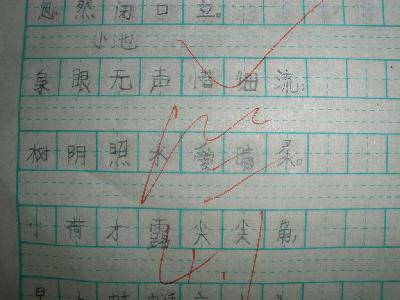 忽然闭口立。
小池
泉眼无声惜细流,
树阴照水爱晴柔。
小荷才露尖尖角,